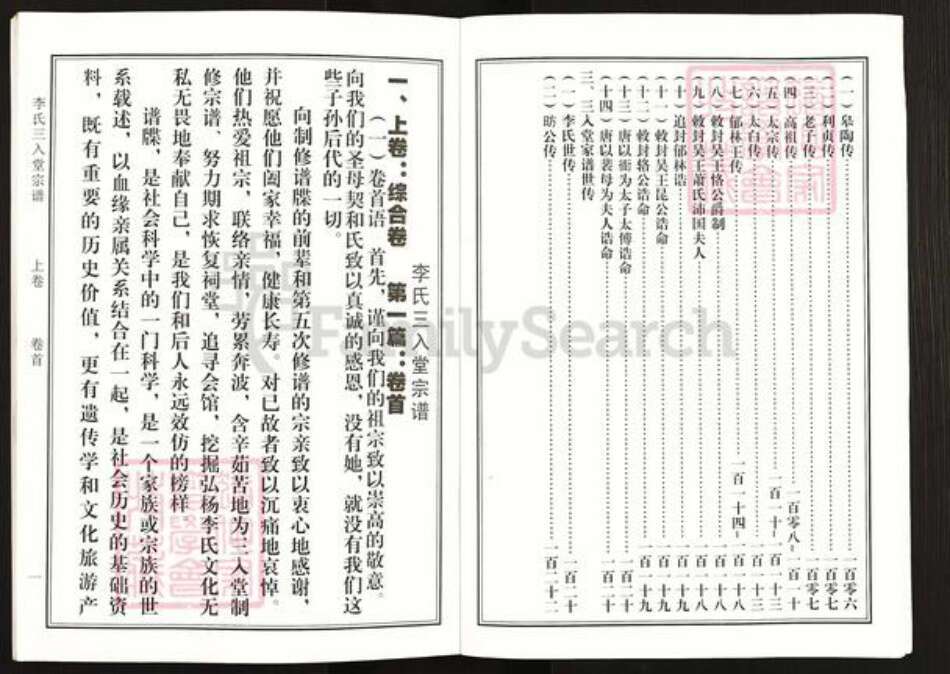 (一)皋陶传……一百零六
(二)利贞传……一百零七
(三)老子传……一百零七
(四)高祖传……一百零八-一百一十
(五)太宗传……一百一十-一百一十三
(六)太白传……一百一十三
(七)郁林王传……一百一十四-一百一十八
(八)敕封吴王恪公爵制……一百一十八
(九)敕封吴王萧氏沛国夫人……一百一十八
(十)追封郁林诰……一百一十九
(十一)敕封吴王昆公诰命……一百一十九
(十二)敕封辂公诰命……一百一十九
(十三)唐以衙为太子太傅诰命……一百二十
(十四)唐以裴母为夫人诰命……一百二十
三、三入堂家谱世传
(一)李氏世传……一百二十
(二)昉公传……一百二十二
李氏三入堂宗谱
一、上卷:综合卷 第一篇:卷首
(一)卷首语 首先,谨向我们的祖宗致以崇高的敬意。
向我们的圣母契和氏致以真诚的感恩,没有她,就没有我们这
些子孙后代的一切。
向制修谱牒的前辈和第五次修谱的宗亲致以衷心地感谢,
并祝愿他们阖家幸福,健康长寿。对已故者致以沉痛地哀悼。
他们热爱祖宗,联络亲情,劳累奔波,含辛茹苦地为三入堂制
修宗谱、努力期求恢复祠堂,追寻会馆,挖掘弘杨李氏文化无
私无畏地奉献自己,是我们和后人永远效仿的榜样。
谱牒,是社会科学中的一门科学,是一个家族或宗族的世
系载述,以血缘亲属关系结合在一起,是社会历史的基础资
料,既有重要的历史价值,更有遗传学和文化旅游产
李氏三入堂宗谱 上卷 卷首 一
FamilySearch